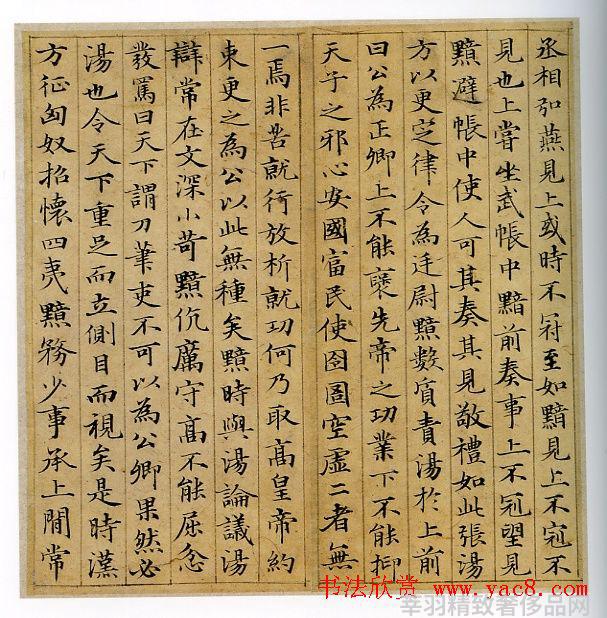 丞相弘燕見上或時不冠至如黯見上不冠不
見也上嘗坐武帳中黯前奏事上不冠望見
黯避帳中使人可其奏其見敬禮如此張湯
方以更定律令為廷尉黯數質責湯於上前
曰公為正卿上不能褒先帝之功業下不能抑
天子之邪心安國富民使囹圄空虛二者無
一焉非苦就行放析就功何乃取高皇帝約
束更之為公以此無種矣黯時與湯論議湯
辯常在文深小苛黯伉厲守高不能屈忿
發罵曰天下謂刀筆吏不可以為公卿果然必
湯也令天下重足而立側目而視矣是時漢
方征匈奴招懷四夷黯務少事承上間常
书法欣赏 www.yac8.com
幸羽精致奢侈品网